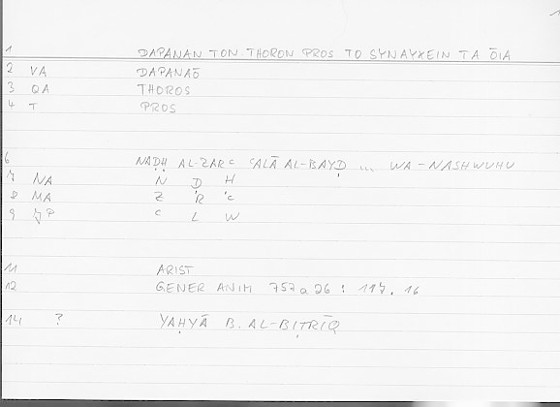 1 DAPANAN TON THORON PROS TO SYNAYXEIN TA ŌIA
2 VA DAPANAŌ
3 QA THOROS
4 T PROS
6 NAḌḤ AL-ZARC CALĀ AL-BAYḌ ... WA-NASHWUHU
7 NA N Ḍ H
8 MA Z R C
9 JP C L W
11 ARIST
12 GENER ANIM 757a26 : 117.16
14 ? YAḤYĀ B. AL-BIṬRĪQ